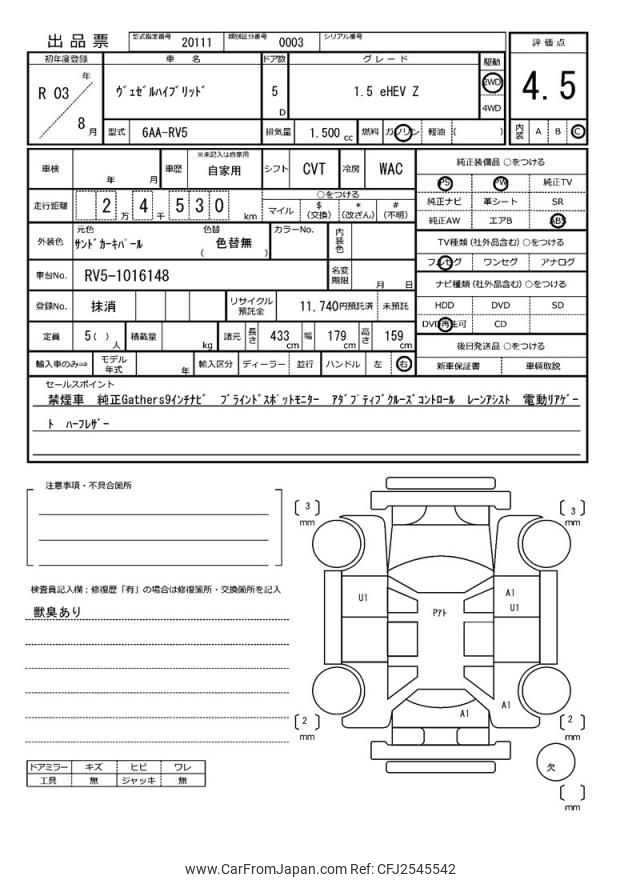 出品票 型式指定番号 20111 類別区分番号 0003 シリアル番号
評価点
初年度登録 車名 ドア数 グレード 駆動
R 03 年 8 月 ヴェゼルハイブリッド 5 D 1.5 eHEV Z 2WD 4WD 4.5
型式 6AA-RV5 排気量 1.500 cc 燃料 ガソリン 軽油 ( ) 内装 A B C
車検 年 月 車歴 ※未記入は自家用 自家用 シフト CVT 冷房 WAC
純正装備品 ○をつける
PS PW 純正TV
走行距離 2 万 4 千 5 3 0 km ○をつける マイル $ (交換) * (改ざん) # (不明)
純正ナビ 革シート SR
純正AW エアB ABS
外装色 元色 サンドカーキパール 色替 ( 色替無 ) カラーNo. 内装色
TV種類(社外品含む)○をつける
フルセグ ワンセグ アナログ
車台No. RV5-1016148 名変期限 月 日
ナビ種類(社外品含む)○をつける
登録No. 抹消 リサイクル預託金 11,740円預託済 未預託
HDD DVD SD
DVD再生可 CD
定員 5( ) 人 積載量 kg 諸元 長さ 433 cm 幅 179 cm 高さ 159 cm
後日発送品 ○をつける
輸入車のみ⇒ モデル年式 年 輸入区分 ディーラー 並行 ハンドル 左 右
新車保証書 車輌取説
セールスポイント
禁煙車 純正Gathers9インチナビ ブラインドスポットモニター アダプティブクルーズコントロール レーンアシスト 電動リアゲー
ト ハーフレザー
注意事項・不具合箇所
検査員記入欄：修復歴「有」の場合は修復箇所・交換箇所を記入
獣臭あり
ドアミラー キズ ヒビ ワレ
工具 無 ジャッキ 無
3 mm
3 mm
U1
A1
U1
Pアト
A1
A1
2 mm
2 mm
欠
mm
www.CarFromJapan.com Ref: CFJ2545542